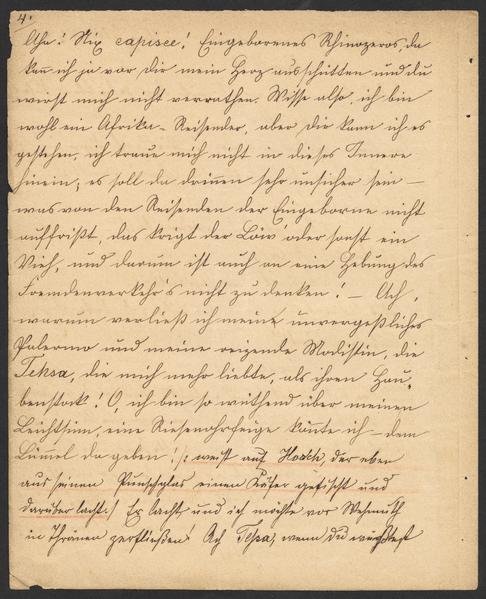 4.
Aha! Nix capisce! Eingeborenes Rhinozeros, da
kann ich ja vor dir mein Herz ausschütten und du
wirst mich nicht verrathen. Wisse also, ich bin
wohl ein Afrika-Reisender, aber dir kann ich es
gestehen, ich traue mich nicht in dieses Innere
hinein; es soll da drinnen sehr unsicher sein –
was von den Reisenden der Eingeborne nicht
auffrißt, das krigt der Löw' oder sonst ein
Vieh, und darum ist auch an eine Hebung des
Fremdenverkehr's nicht zu denken! – Ach,
warum verließ ich meine unvergeßliches
Palermo und meine reizende Modistin, die
Tehsa, die mich mehr liebte, als ihren Hau-
benstock! O, ich bin so wüthend über meinen
Leichtsinn, eine Riesenohrfeige könnte ich – dem
Lümmel da geben! /: weist auf Hosch, der eben
aus seinen Punschglas einen Käfer gefischt und
darüber lacht :/ Er lacht, und ich möchte vor Wehmuth
in Thränen zerfließen! Ach Tehsa, wenn du wüsstest